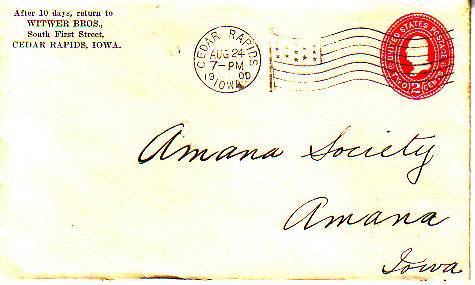 After 10 days, return to
WITWER BROS.,
South First Street,
CEDAR RAPIDS, IOWA.
CEDAR RAPIDS
AUG 24
7-PM
19 00
IOWA
UNITED STATES POSTAGE
2
TWO CENTS
Amana Society
Amana
Iowa